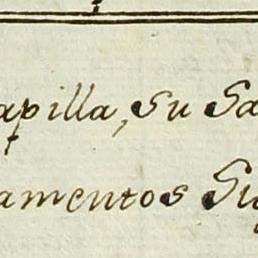 apilla, Su Sa
amentos Su